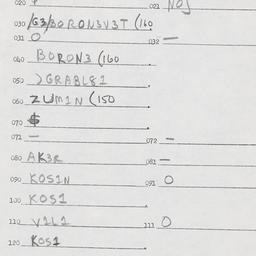 020 021 NOJ
030 /G3/BORON3V3T (160
031 O 032 —
040 BORON3 (160
050 >GRABL81
060 ZUM1N (150
070 $
071 — 072 —
080 AK3R 081 —
090 KOS1N 091 O
100 KOS1
110 V1L1 111 O
120 KOS1